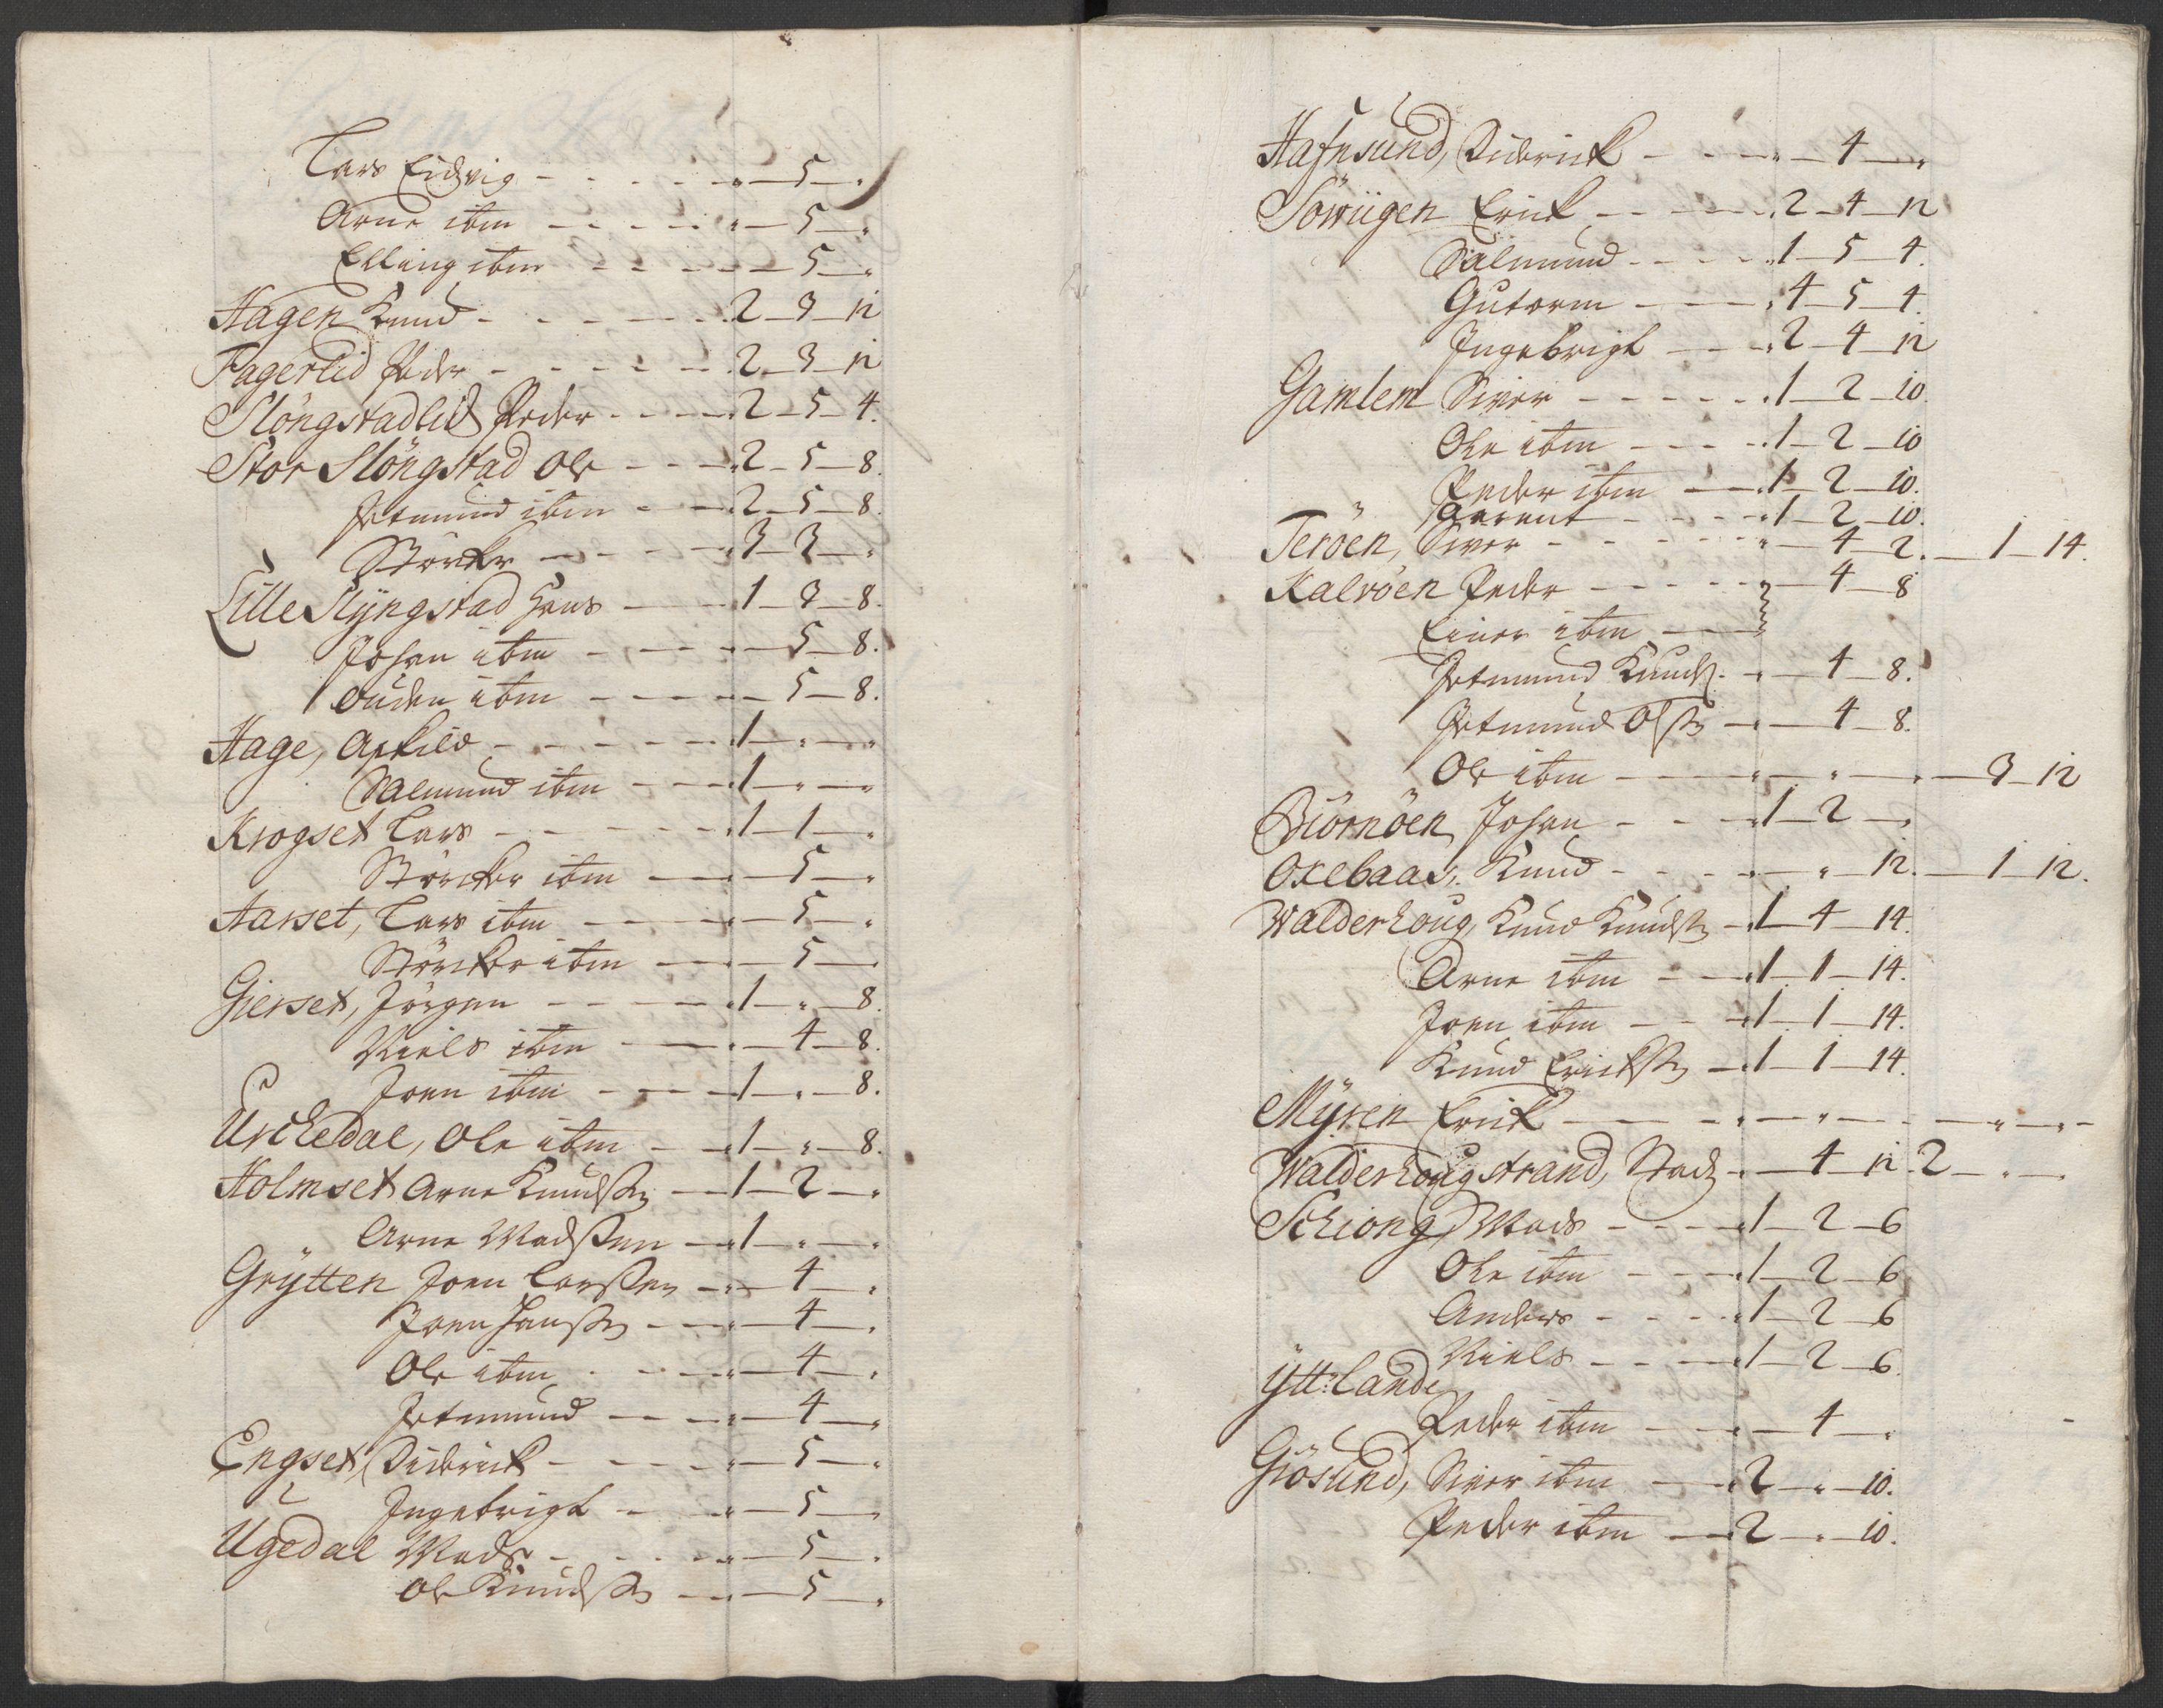 Lars Eidsvig - - - - - " - 5 - "
Arne ibm - - - - " - 5 - "
Elling ibm - - - - - 5 - "
Hagen Knud - - - - - 2 - 3 - 12
Fagerlid Peder - - - - - 2 - 3 - 12
Slöngstadlid Peder - - - - 2 - 5 - 4.
Stor Slöngstad Ole - - - 2 - 5 - 8.
Jetmund ibm - - - 2 - 5 - 8.
Störcker - - - - 3 - 3 - "
Lille Slÿngstad Hans - - - 1 - 3 - 8.
Johan ibm - - - - " - 5 - 8.
Ouden ibm - - - - - 5 - 8.
Hage, Askild - - - - - 1 - " - "
Salmund ibm - - - 1 - " - "
Krogset Lars - - - - - 1 - 1 - "
Störcker ibm - - - 5 - "
Aarset, Lars ibm - - - " - 5 - "
Störcker ibm - - - 5 -
Gierset, Jörgen - - - - 1 - " - 8.
Niels ibm - - " - 4 - 8.
Joen ibm - - - 1 - " - 8.
Urchedal, Ole ibm - - 1 - " - 8.
Holmset Arne Knudsen - - 1 - 2 - "
Arne Madssen - - 1 - " - "
Grÿtten Joen Larssen - " - 4 - "
Joen Hanssen - - - " - 4 - "
Ole ibm - - - " - 4 - "
Jetmund - - - " - 4 - "
Engset, Diderick - - - - " - 5 - "
Ingebrigt - - - " - 5 - "
Ugedal Mads - - - - " - 5 - "
Ole Knudsen - - - 5 - "
Hafnsund, Diderick - - - " - 4 - "
Söwiigen Erick - - - - 2 - 4 - 12
Salmund - - - - 1 - 5 - 4.
Gutorm - - - 4 - 5 - 4.
Ingebrigt - - - 2 - 4 - 12
Gamlem Siver - - - - - 1 - 2 - 10
Ole ibm - - - - 1 - 2 - 10
Peder ibm - - 1 - 2 - 10.
- - - - 1 - 2 - 10.
Teröen, Siver - - - - - " - 4 - 2. - 1 - 14.
Kalvöen Peder - - - - - 4 - 8
Einer ibm - -
Jetmund Knuds. - " - 4 - 8.
Jetmund Olsen - - 4 - 8.
Ole ibm - - - " - " - " - 3 - 12
Biörnöen, Johan - - - 1 - 2 - "
Oxebaas, Knud - - - - - " - 12. - 1 - 12.
Walderhoug, Knud Knudsen - 1 - 4 - 14.
Arne ibm - - - 1 - 1 - 14.
Joen ibm - - - 1 - 1 - 14.
Knud Ericksen - 1 - 1 - 14.
Mÿren Erick - - - - " - " - - - " - " -
Walderhougstrand, - - 4 - 12. 2 - " -
Schiong, Mads - - - - 1 - 2 - 6
Ole ibm - - - - 1 - 2 - 6
Anders - - - - 1 - 2 - 6
Niels - - - 1 - 2 - 6.
Ÿtt: Lande
Peder ibm - - - " - 4 - "
Giösund, Siver ibm - - 2 - " - 10.
Peder ibm - - 2 - " - 10.